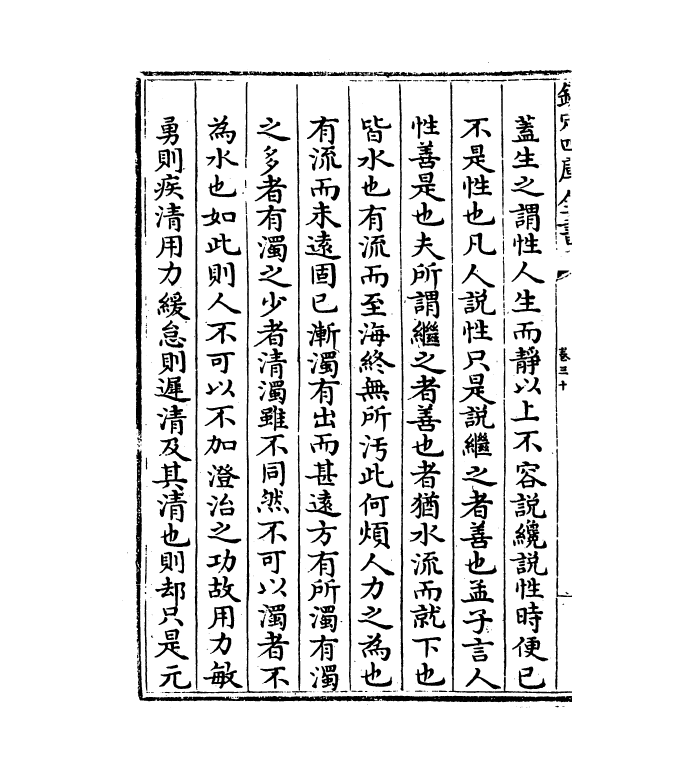 欽定四庫全書
卷三十
蓋生之謂性人生而靜以上不容説纔説性時便已
不是性也凡人説性只是説繼之者善也孟子言人
性善是也夫所謂繼之者善也者猶水流而就下也
皆水也有流而至海終無所汚此何煩人力之為也
有流而未遠固已漸濁有出而甚遠方有所濁有濁
之多者有濁之少者清濁雖不同然不可以濁者不
為水也如此則人不可以不加澄治之功故用力敏
勇則疾清用力緩怠則遲清及其清也則却只是元